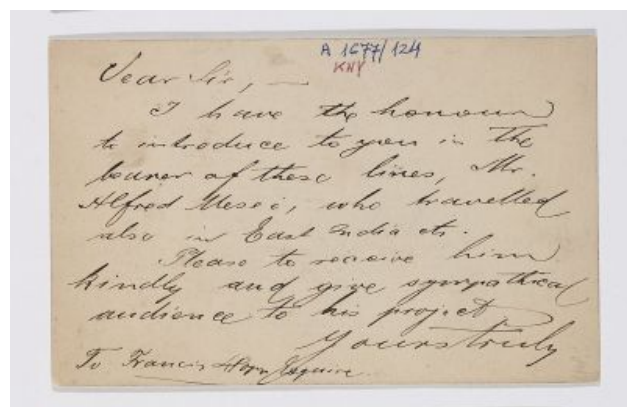 A 1677/124
KNY
Dear Sir, —
I have the honour
to introduce to you in the
bearer of these lines, Mr.
Alfred Mesei, who travelled
also in East India etc.
Please to receive him
kindly and give sympathical
audience to his project
Yours truly
To Francis Esquire